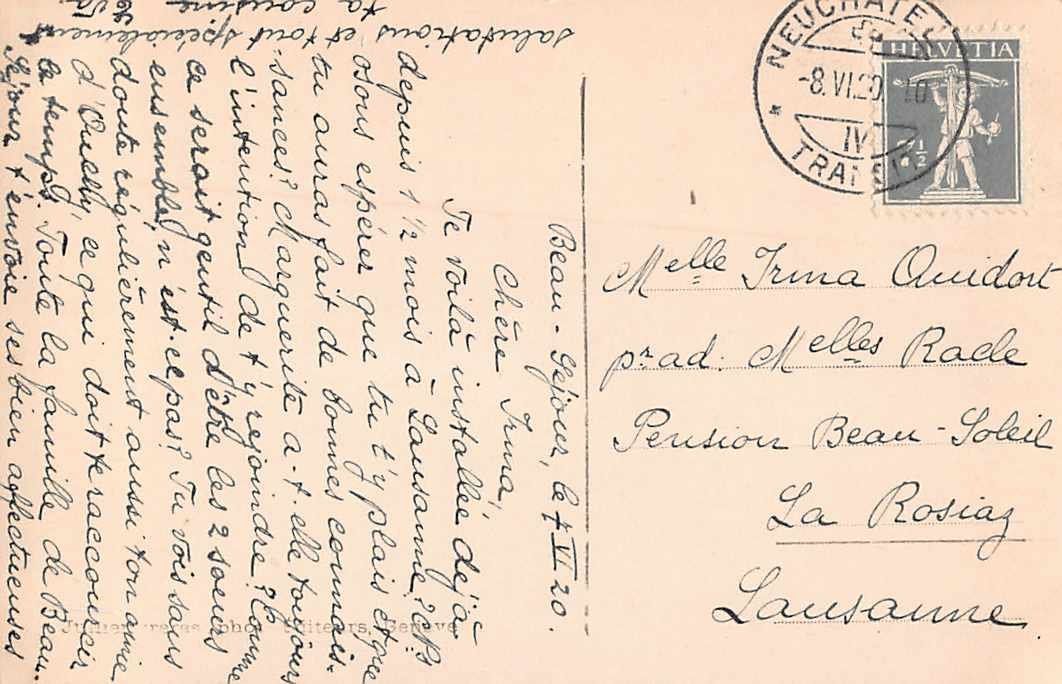 Beau-Séjour, le 7 VI 20.
Chère Irma,
Te voilà installée déjà
depuis 1 1/2 mois à Lausanne?
osons espérer que tu t'y plais et que
tu auras fait de bonnes connais-
sances? Marguerite a-t-elle toujours
l'intention de t'y rejoindre? Comme
ce serait gentil d'être les 2 soeurs
ensemble, n'est-ce pas? Tu vois sans
doute régulièrement aussi ton amie
d'Ouchy, ce qui doit te raccourcir
le temps. Toute la famille de Beau-
Séjour t'envoie ses bien affectueuses
salutations et tout spécialement
ta cousine
NEUCHATEL
-8.VI.20
IV
TRANSIT
HELVETIA
7 1/2
Melle Irma Quidort
pr ad: Melles Racle
Pension Beau-Soleil
La Rosiaz
Lausanne
Jullien frères phot. éditeurs, Genève